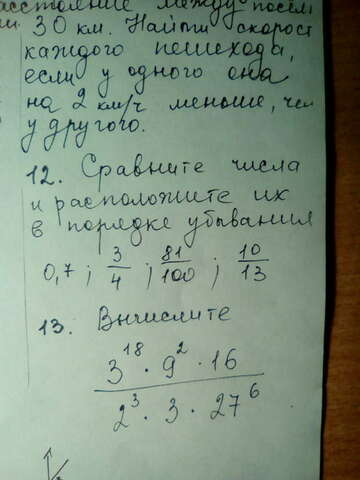 расстояние между
30 км. Найти скорост
каждого пешехода,
если у одного она
на 2 км/ч меньше, чем
у другого.
12. Сравните числа
и расположите их
в порядке убывания
0,7 ; 3/4 ; 81/100 ; 10/13
13. Вычислите
3^18 · 9^2 · 16
2^3 · 3 · 27^6